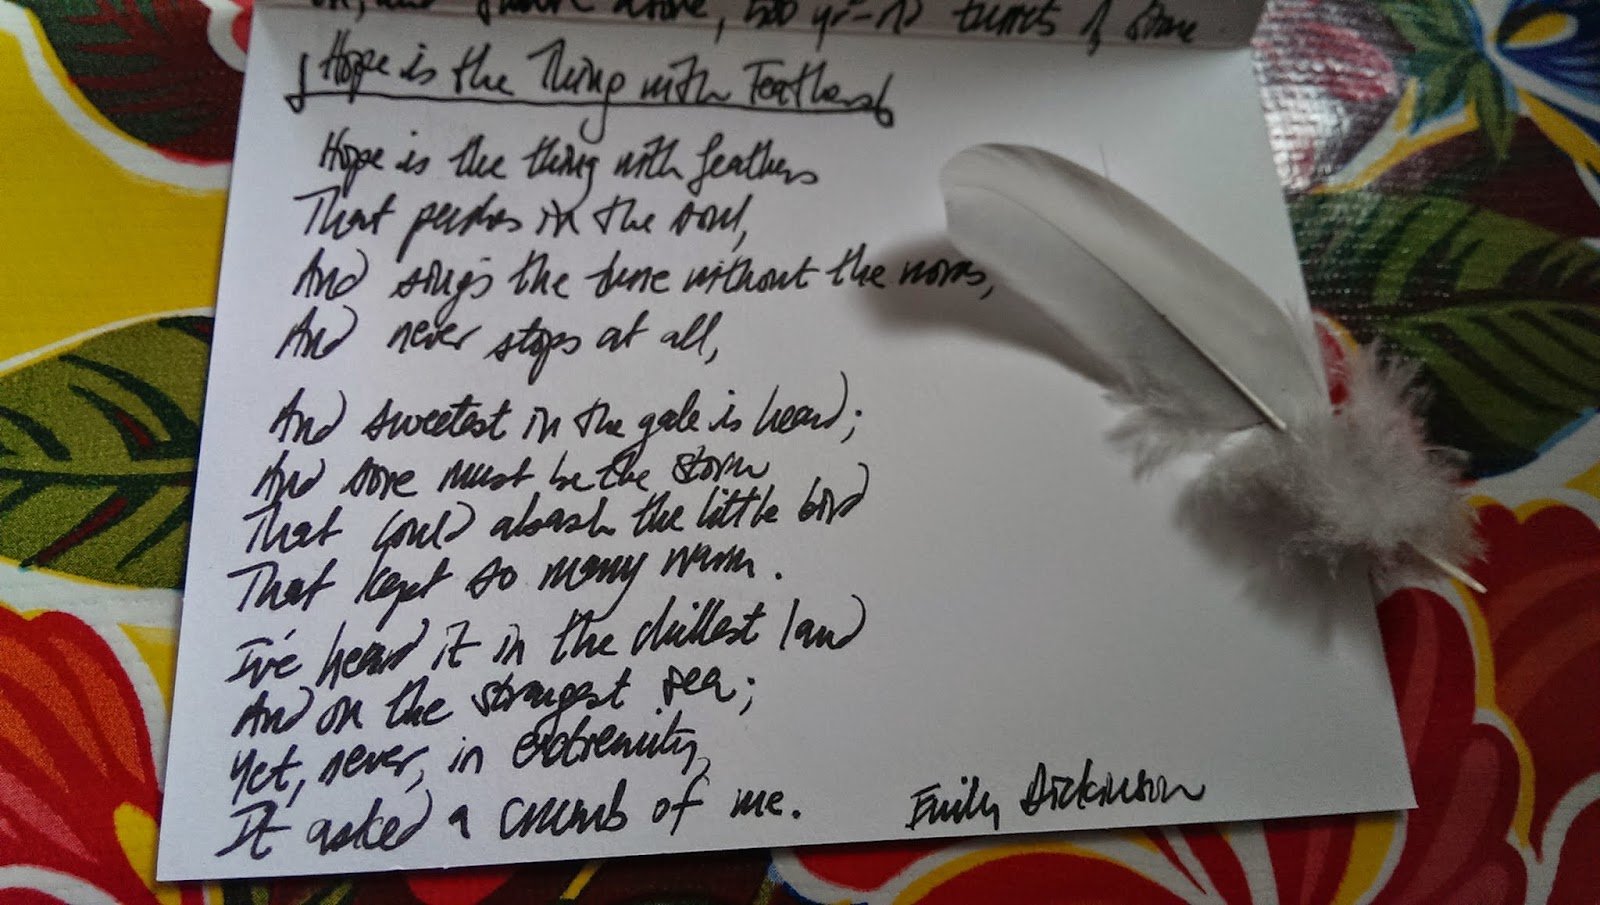 above, 500 yr-old turrets of stone
Hope is the Thing with Feathers
Hope is the thing with feathers
That perches in the soul,
And sings the tune without the words,
And never stops at all,
And sweetest in the gale is heard;
And sore must be the storm
That could abash the little bird
That kept so many warm.
I've heard it in the chillest land
And on the strangest sea;
Yet, never, in extremity,
It asked a crumb of me.
Emily Dickinson